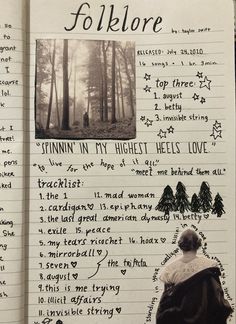 folklore
by: taylor swift
RELEASED: July 24, 2020
16 songs - 1 hr 3min
top three:
1. august
2. betty
3. invisible string
"SPINNIN' IN MY HIGHEST HEELS LOVE"
"to live for the hope of it all"
"meet me behind them all"
tracklist:
1. the 1
2. cardigan
3. the last great american dynasty
4. exile
5. my tears ricochet
6. mirrorball
7. seven
8. august
the trifecta
9. this is me trying
10. illicit affairs
11. invisible string
12. mad woman
13. epiphany
14. betty
15. peace
16. hoax